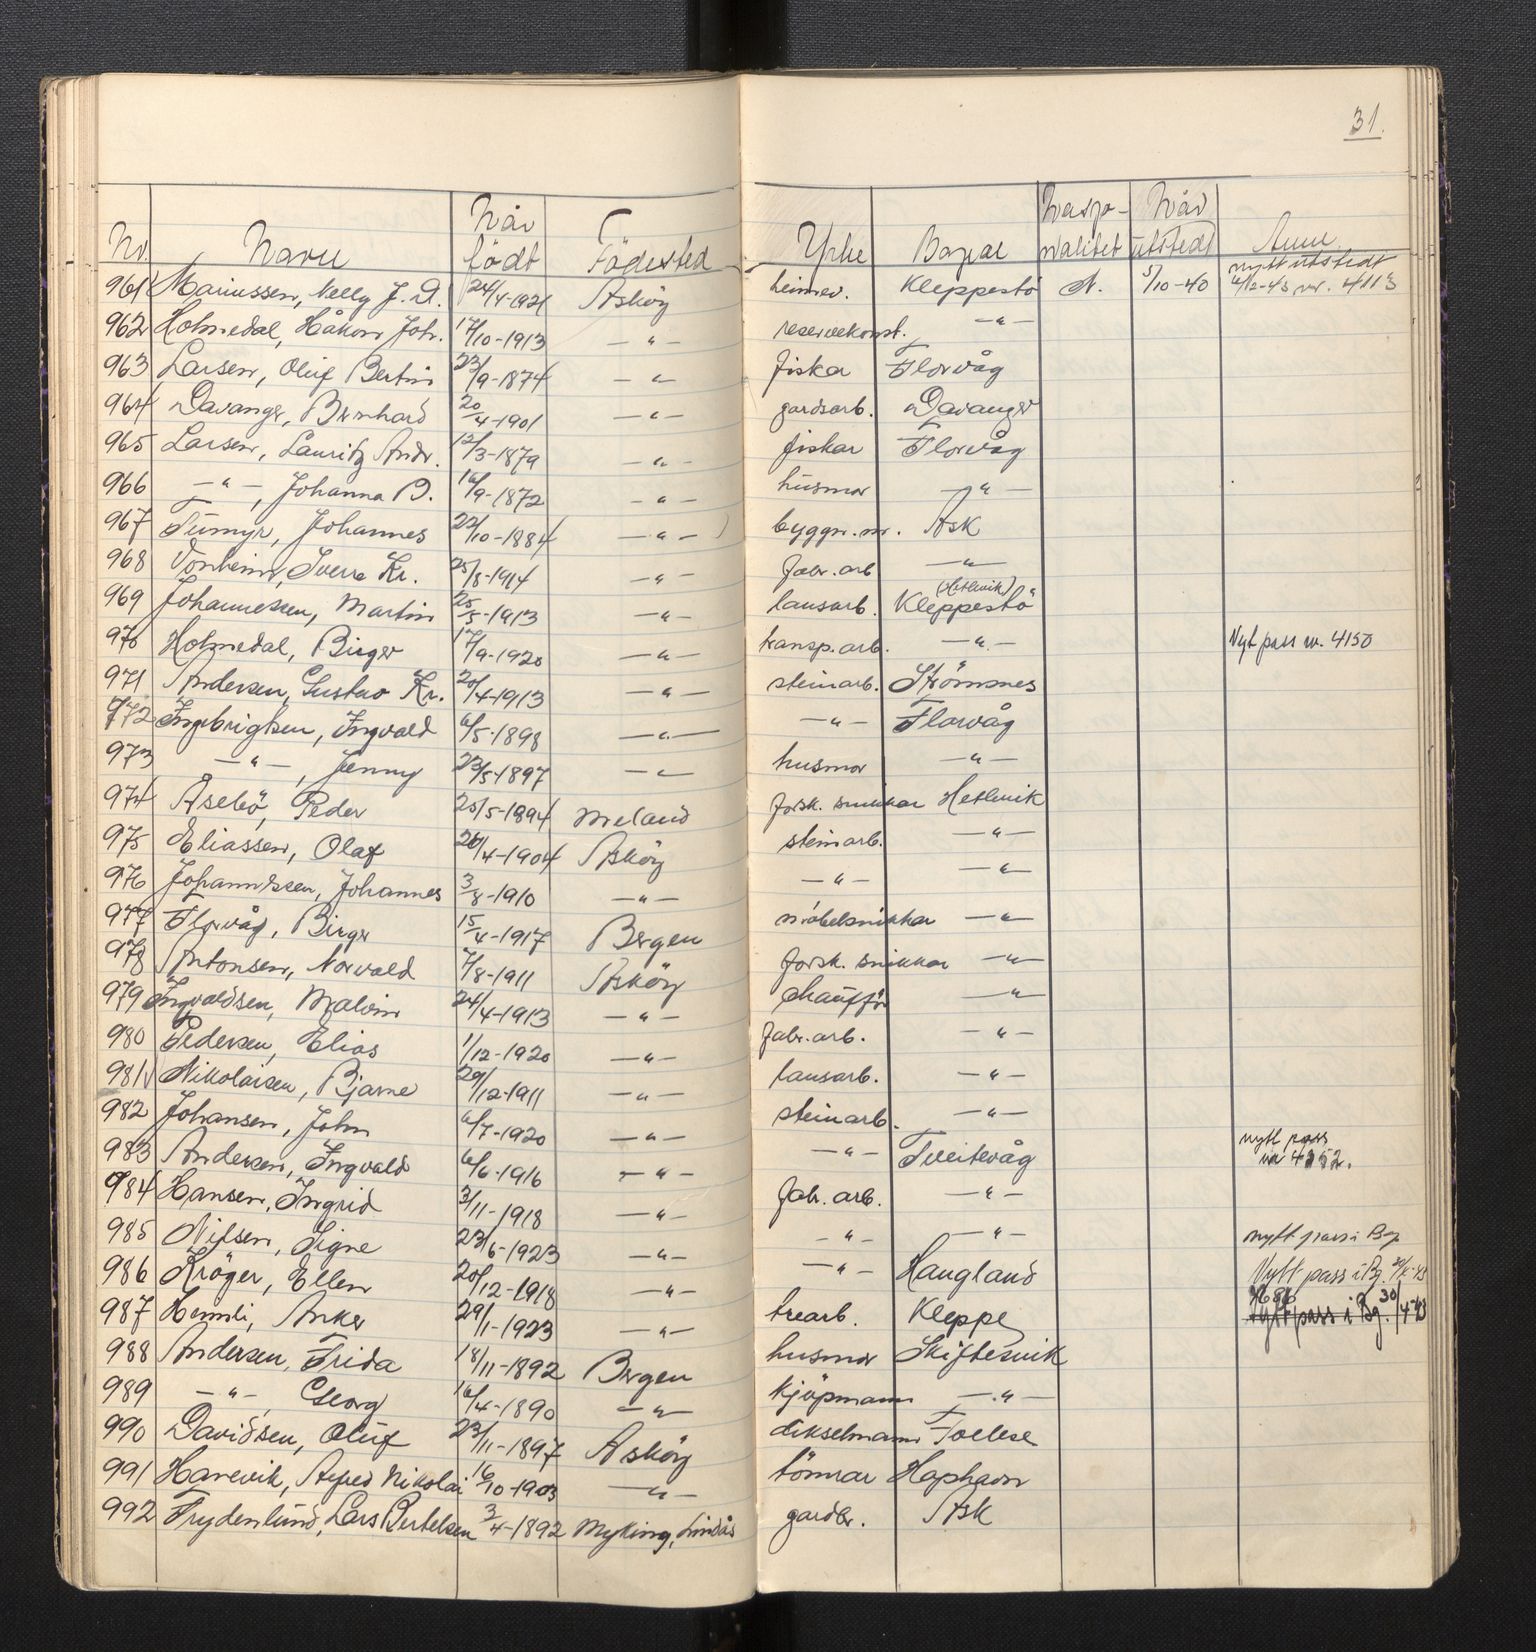 31.
Nr. Navn Når födt Födested Yrke Bopæl Nasjonalitet Når utstedt Anm.
961 Mariussen, Nelly J. D. 24/4-1921 Asköy heimev. Kleppestö N. 5/10-40 nytt utstedt 4/12-43 nr. 4113
962 Holmedal, Håkon Joh. 17/10-1913 -"- reservekonst. -"-
963 Larsen, Oluf Bertin 23/9-1874 -"- fisker Florvåg
964 Davanger, Bernhard 20/4-1901 -"- gardsarb. Davanger
965 Larsen, Lauritz Andr. 12/3-1879 -"- fiskar Florvåg
966 -"-, Johanna B. 16/9-1872 -"- husmor -"-
967 Tumyr, Johannes 22/10-1884 -"- byggn.m. Ask
968 Vonheim, Sverre Kr. 25/8-1914 -"- fabr.arb -"-
969 Johannessen, Martin 25/5-1913 -"- lausarb. Kleppestö (Hetlevik)
970 Holmedal, Birger 17/9-1920 -"- transp.arb. -"- Nyt pass nr. 4150
971 Andersen, Gustav Kr. 20/4-1913 -"- steinarb. Strömsnes
972 Ingebrigtsen, Ingvald 6/5-1898 -"- -"- Florvåg
973 -"-, Jenny 23/5-1897 -"- husmor -"-
974 Åsebö, Peder 25/5-1894 Meland forsk. snikkar Hetlevik
975 Eliassen, Olaf 26/4-1904 Asköy steinarb. -"-
976 Johannessen, Johannes 3/8-1910 -"- -"- -"-
977 Florvåg, Birger 15/4-1917 Bergen möbelsnikkar -"-
978 Antonsen, Norvald 7/8-1911 Asköy forsk. snikkar -"-
979 Ingvaldsen, Malvin 24/4-1913 -"- chaufför -"-
980 Pedersen, Elias 1/12-1920 -"- fabr.arb. -"-
981 Nikolaisen, Bjarne 29/12-1911 -"- lausarb. -"-
982 Johansen, John 6/7-1920 -"- steinarb. -"-
983 Andersen, Ingvald 6/6-1916 -"- -"- Tveitevåg nytt pass nr 4152.
984 Hansen, Ingrid 3/11-1918 -"- fabr. arb. -"-
985 Nilsen, Signe 23/6-1923 -"- -"- -"- nytt pass i Bg
986 Kröger, Ellen 20/12-1918 -"- -"- Haugland Nytt pass i Bg.
987 Hemli, Anker 29/1-1923 -"- trearb. Kleppe Nytt pass i Bg. 30/4-43
988 Andersen, Frida 18/11-1892 Bergen husmor Skiftesvik
989 -"- Georg 16/4-1890 -"- kjöpmann -"-
990 Davidsen, Oluf 23/11-1897 Asköy dikselmann Follese
991 Hanevik, Alfred Nikolai 16/10-1903 -"- tömrar Hophavn
992 Frydenlund, Lars Bertelsen 3/4-1892 Myking, Lindås gardbr. Ask